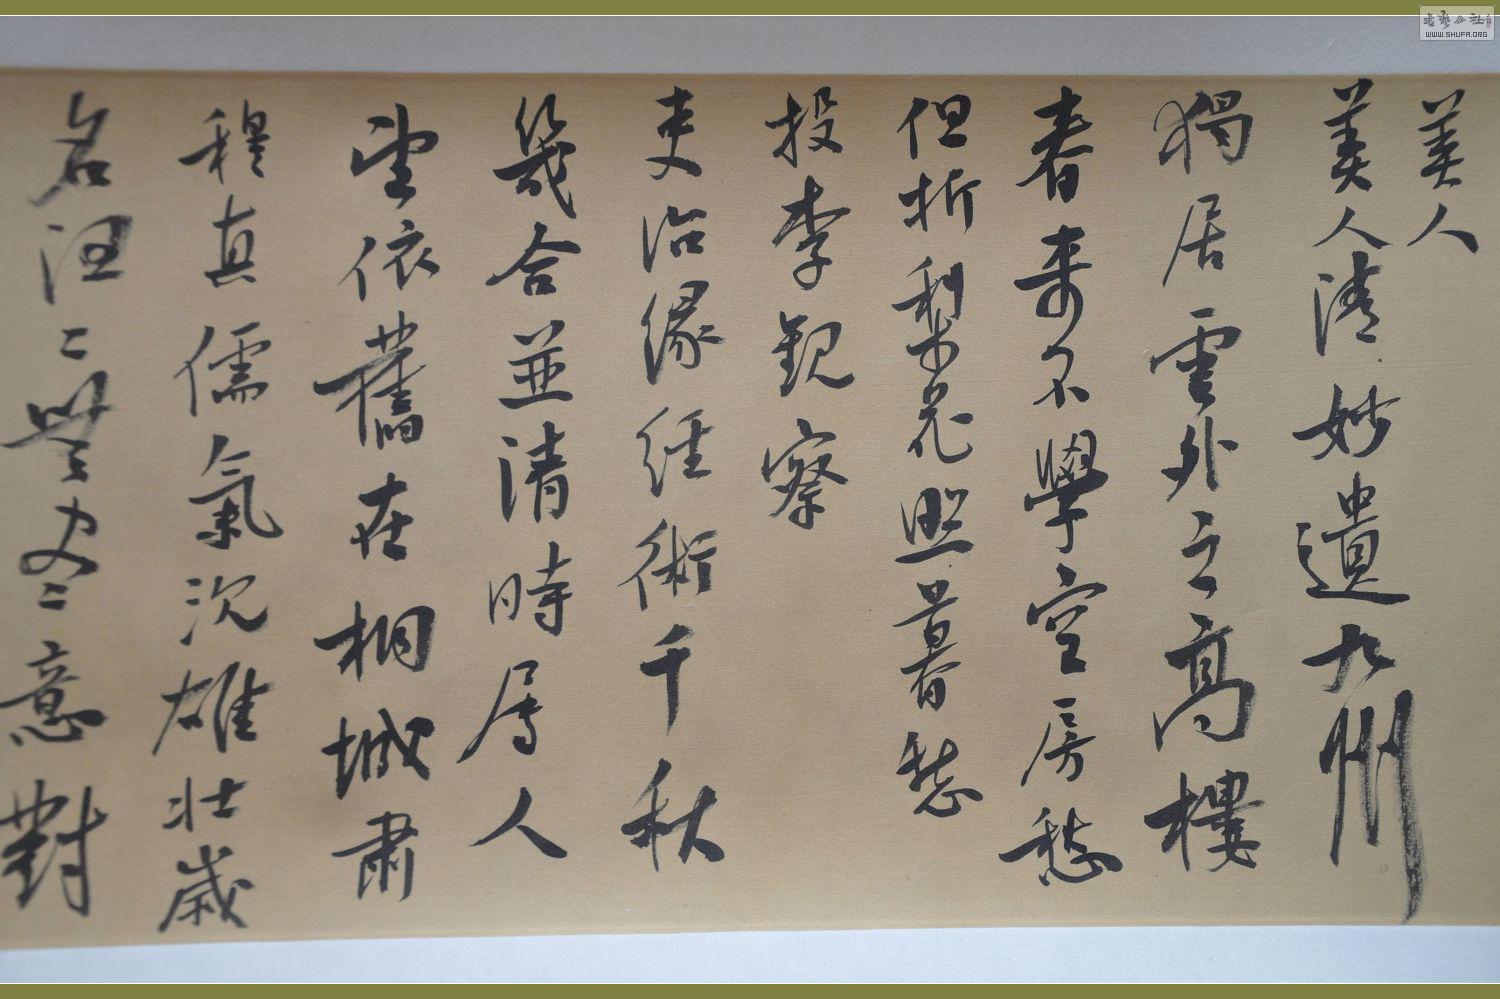 美人
美人清妙遺九州
獨居雲外之高樓
春來不學空房愁
但折梨花照暮愁
投李觀察
吏治緣經術千秋
幾合並清時唇人
望依舊在桐城肅
穆真儒氣沉雄壯歲
名汪〻無〻意對
書艺公社
WWW.SHUFA.ORG